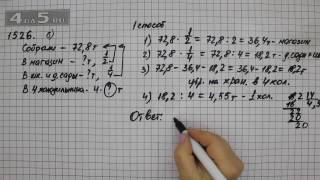 4 GDZ 5.RU
1526. 1)
Собрали - 72,8 т
В магазин - ?т, 1/2
В ... и д.сады - ?т, 1/4
В 4 холодильника - 4 · ? т
1 способ
1) 72,8 · 1/2 = 72,8 : 2 = 36,4т - магазин
2) 72,8 · 1/4 = 72,8 : 4 = 18,2т - д.сады
3) 72,8 - 36,4 - 18,2 = 36,4 - 18,2 = 18,2т
на хран. в 4 хол.
4) 18,2 : 4 = 4,55т - 1 хол.
18,2 4
20
20
Ответ: